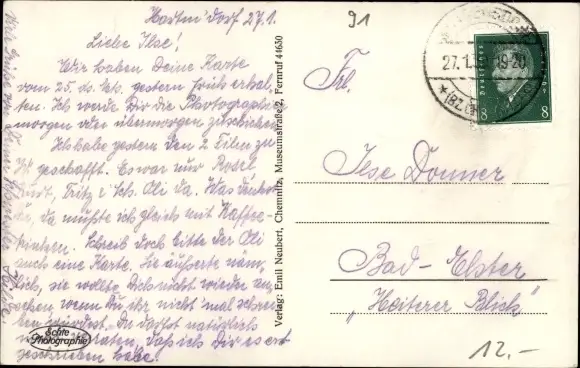 91
Liebe Ilse!
Wir haben Deine Karte
vom 25. ds. Mts. gestern früh erhal-
ten. Ich werde Dir die Photographie
morgen oder übermorgen zuschicken.
Ich habe gestern den 2 Filen zu-
geschafft. Es war nur Rosel
Fritz & Ich. Oli da. Was
da mußte ich gleich mit Kaffee-
trinken. Schreib doch bitte der Oli
auch eine Karte. Sie äußerte näm-
lich, sie wollte Dich nicht wieder an-
sehen wenn Du ihr nicht 'mal schrei-
ben würdest. Du darfst natürlich
daß ich Dir es erst
geschrieben habe!
Echte
Photographie
Verlag: Emil Neubert, Chemnitz, Museumstraße 2, Fernruf 44630
27.1. 19-20
(BZ. CH
Deutsches
8 8
Frl.
Ilse Donner
Bad-Elster
„Heiterer Blick"
12.-